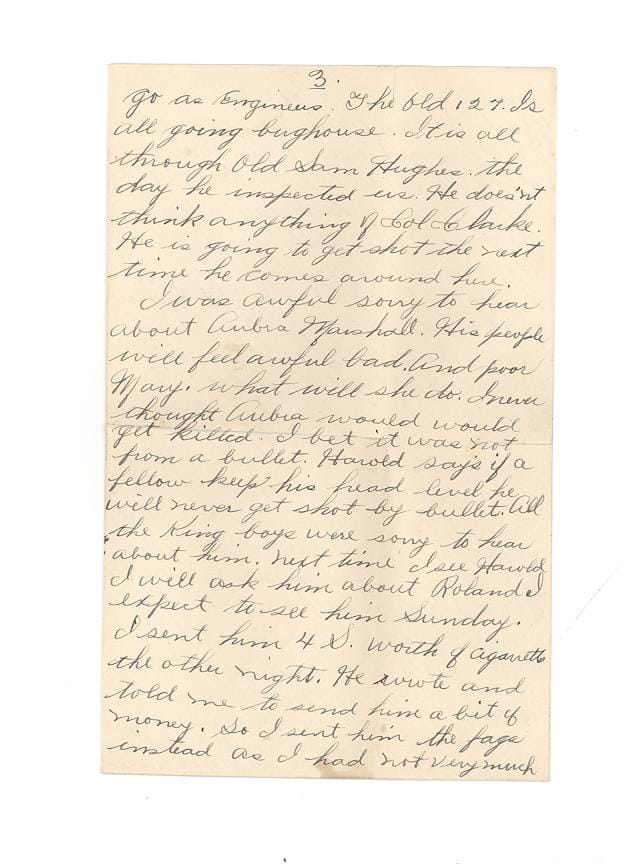 3.
go as Engineers. The Old 127. Is
all going bughouse. It is all
through Old Sam Hughes. the
day he inspected us. He does'nt
think anything of Col Clarke.
He is going to get shot the next
time he comes around here.
I was awful sorry to hear
about Aubra Marshall. His people
will feel awful bad. And poor
Mary. what will she do. I never
thought Aubra would would
get killed. I bet it was not
from a bullet. Harold says if a
fellow keep his head level he
will never get shot by bullet. All
the King boys were sorry to hear
about him. next time I see Harold
I will ask him about Roland I
expect to see him Sunday.
I sent him 4 S. worth of cigaretts
the other night. He wrote and
told me to send him a bit of
money. So I sent him the fags
instead as I had not very much